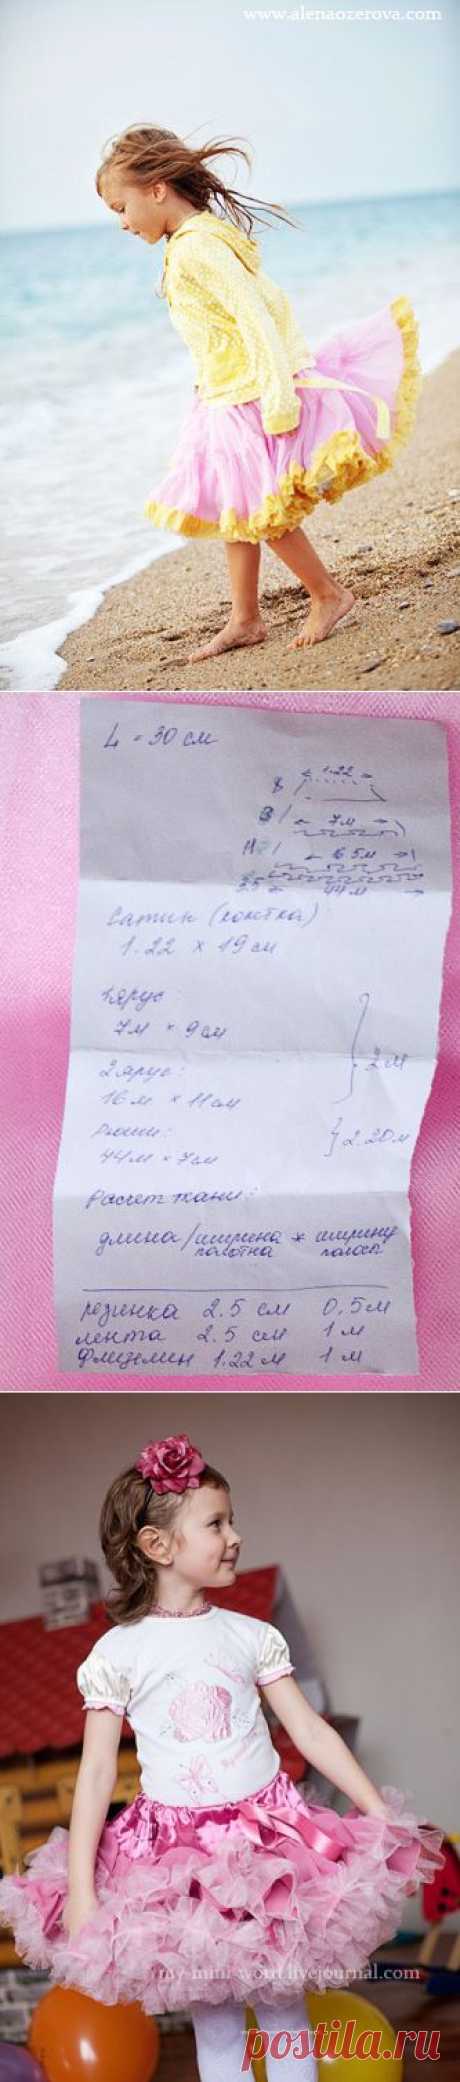 www.alenaozerova.com
L = 30 см
1.22
7м
16.5м
44м
Сатин (кокетка)
1.22 × 19 см
1 ярус:
7м × 9см
2 ярус:
16м × 11см
2м
Рюши:
44м × 7см
2.20м
Расчет ткани:
длина/ширина полотна * ширину полосы
резинка 2.5 см 0,5м
лента 2.5 см 1м
Флизелин 1.22м 1м
my-mini-world.livejournal.com
postila.ru